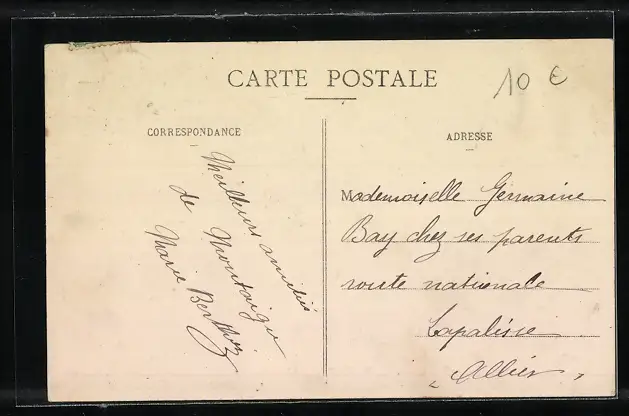 CARTE POSTALE
10 €
CORRESPONDANCE
Meilleures amitiés
de Montaigu
Marie Berthoz
ADRESSE
Mademoiselle Germaine
Bay chez ses parents
route nationale
Lapalisse
Allier